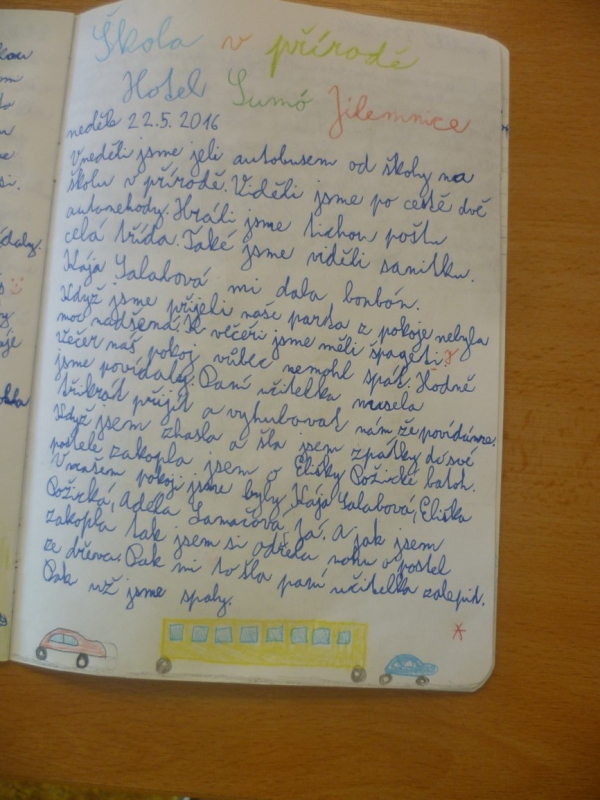 Škola v přírodě
Hotel Sumó Jilemnice
neděle 22.5. 2016
V neděli jsme jeli autobusem od školy na
školu v přírodě. Viděli jsme po cestě dvě
autonehody. Hráli jsme tichou poštu
celá třída. Také jsme viděli sanitku.
Kája Salabová mi dala bonbón.
Když jsme přijeli naše parta z pokoje nebyla
moc nadšená. K večeři jsme měli špagety.
Večer náš pokoj vůbec nemohl spát. Hodně
jsme povídaly. Paní učitelka musela
třikrát přijít a vyhubovat nám že povídáme.
Když jsem zhasla a šla jsem zpátky do své
postele zakopla jsem o Elišky Požické batoh.
V našem pokoji jsme byly, Kája Salabová, Eliška
Požická, Adéla Lamačová, Já. A jak jsem
zakopla tak jsem si odřela nohu o postel
ze dřeva. Pak mi to šla paní učitelka zalepit.
Pak už jsme spaly.